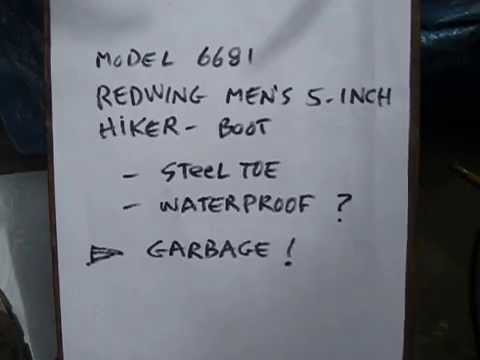 MODEL 6681
REDWING MEN'S 5-INCH
HIKER- BOOT
- STEEL TOE
- WATERPROOF ?
GARBAGE!